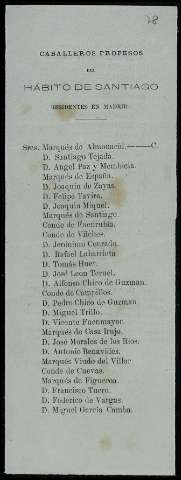 28
CABALLEROS PROFESOS
DEL
HÁBITO DE SANTIAGO
RESIDENTES EN MADRID
Sres. Marqués de C.
D. Santiago Tejada.
D. Angel Paz y Membiela.
Marqués de España.
D. Joaquin de Zayas.
D. Felipe Tavira.
D. Joaquin Miquel.
Marqués de Santiago.
Conde de Fuenrubia.
Conde de Vilches.
D. Jerónimo Conrado.
D. Rafael Labarrieta
D. Tomás Huet.
D. José Leon Teruel.
D. Alfonso Chico de Guzman.
Conde de Campillos.
D. Pedro Chico de Guzman
D. Miguel Trillo.
D. Vicente Fuenmayor.
Marqués de Casa Irujo.
D. José Morales de los Rios.
D. Antonio Benavides.
Marqués Viudo del Villar
Conde de Cuevas.
Marqués de Figueroa.
D. Francisco Tuero.
D. Federico de Vargas.
D. Miguel García Camba.